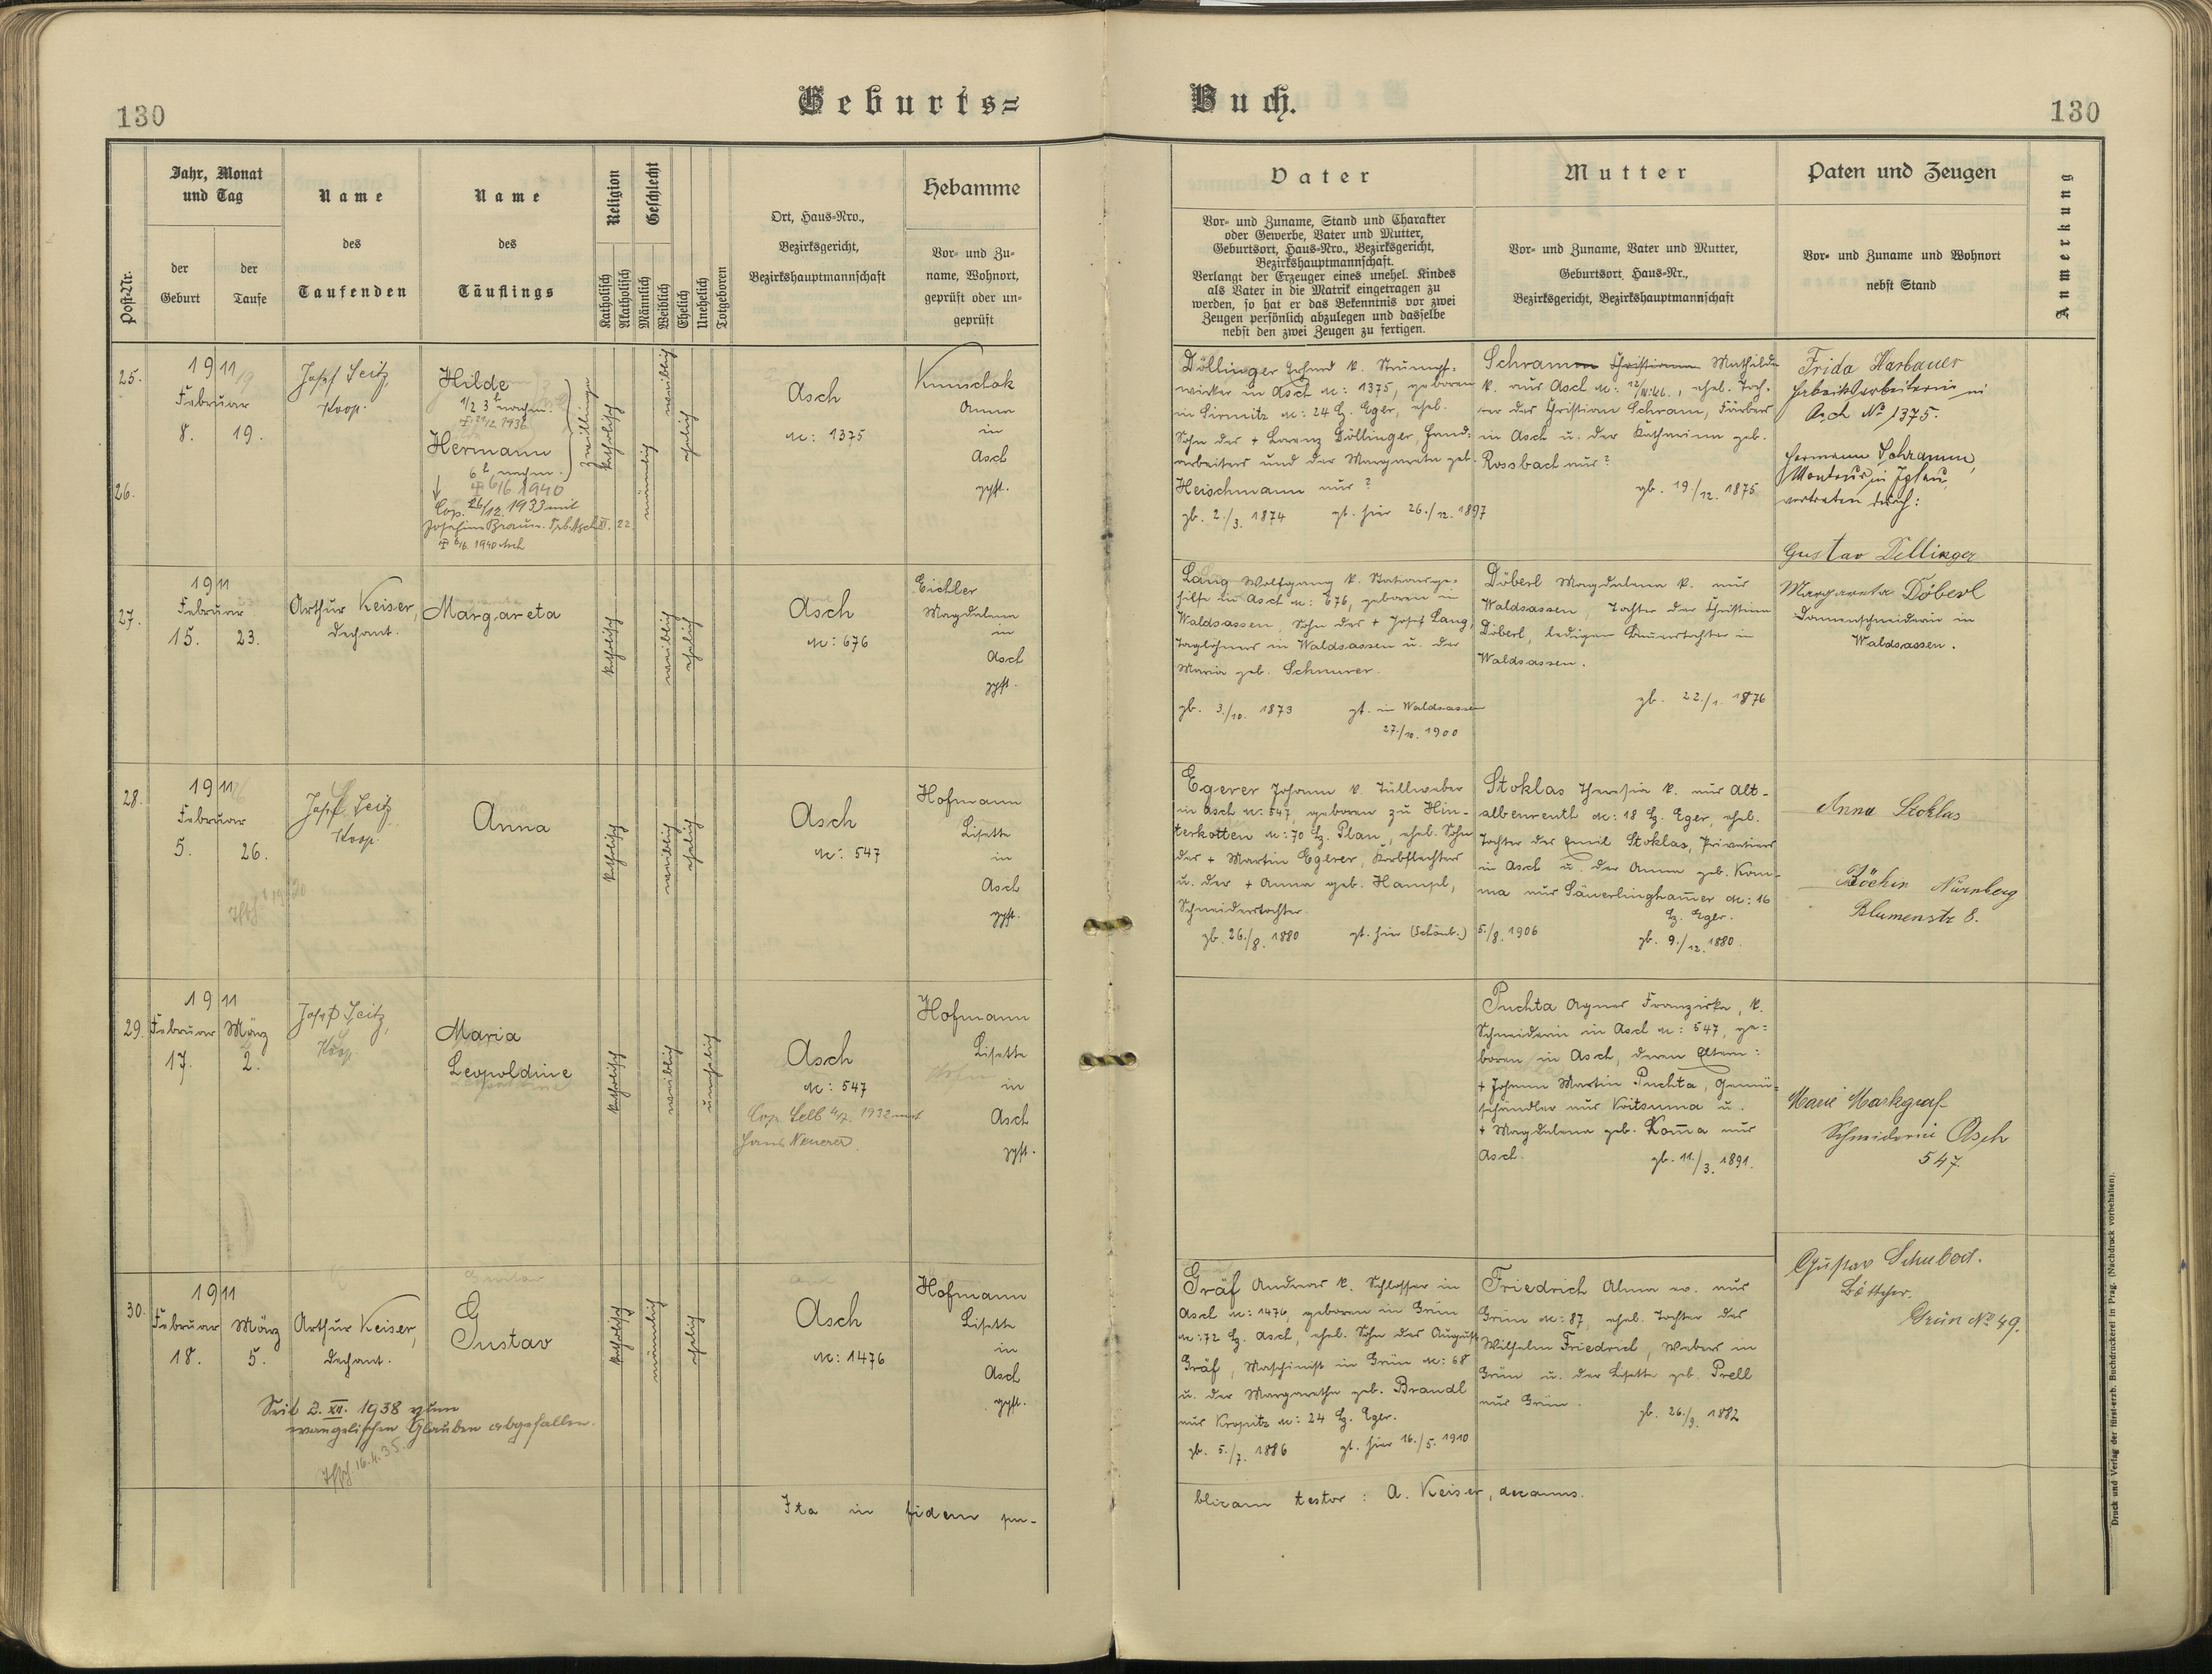 130
Geburts=
Buch.
130
Post-Nr.
Jahr, Monat
und Tag
der
Geburt
der
Taufe
Name
des
Taufenden
Name
des
Täuflings
Religion
Katholisch
Akatholisch
Geschlecht
Männlich
Weiblich
Ehelich
Unehelich
Totgeboren
Ort, Haus-Nro.,
Bezirksgericht,
Bezirkshauptmannschaft
Hebamme
Vor- und Zu-
name, Wohnort,
geprüft oder un-
geprüft
Vater
Vor- und Zuname, Stand und Charakter
oder Gewerbe, Vater und Mutter,
Geburtsort, Haus-Nro., Bezirksgericht,
Bezirkshauptmannschaft.
Verlangt der Erzeuger eines unehel. Kindes
als Vater in die Matrik eingetragen zu
werden, so hat er das Bekenntnis vor zwei
Zeugen persönlich abzulegen und dasselbe
nebst den zwei Zeugen zu fertigen.
Mutter
Vor- und Zuname, Vater und Mutter,
Geburtsort Haus-Nr.,
Bezirksgericht, Bezirkshauptmannschaft
Paten und Zeugen
Vor- und Zuname und Wohnort
nebst Stand
Anmerkung
25.
26.
1911
Februar
8. 19.
Josef Seitz,
Koop.
Hilde
1/2 3 h nachm.
Hermann
6 h nachm.
Zwillinge
6/6 1940
Cop. 26/12. 1933 mit
Josefine Braun
katholisch
männlich
weiblich
ehelich
Asch
N: 1375
Anna
in
Asch
gpft.
Döllinger Erhard k. Strumpf-
wirker in Asch N: 1375, geboren
in Sirmitz N: 24 Bz. Eger, ehel.
Sohn des + Lorenz Döllinger, Hand-
arbeiters und der Margareta geb.
Heischmann aus ?
gb. 2./3. 1874 gt. hier 26./12. 1897
Schramm Christiana Mathilde
k. aus Asch N: , ehel. Toch-
ter des Christian Schram, Färbers
in Asch u. der Katharina geb.
Rossbach aus ?
gb. 19./12. 1875
Frida Harbauer
Fabriksarbeiterin in
Asch No 1375.
Hermann Schramm,
Monteur in Iglau,
vertreten durch:
Gustav Dellinger
27.
1911
Februar
15. 23.
Arthur Keiser,
Dechant.
Margareta
katholisch
weiblich
ehelich
Asch
N: 676
Eichler
Magdalena
in
Asch
gpft.
Lang Wolfgang k. Stationsge-
hilfe in Asch N: 676, geboren in
Waldsassen, Sohn des + Josef Lang,
Taglöhners in Waldsassen u. der
Maria geb. Schnurer.
gb. 3./10. 1873 gt. in Waldsassen
27./10. 1900
Döberl Magdalena k. aus
Waldsassen, Tochter der Christina
Döberl, ledigen Bauerstochter in
Waldsassen.
gb. 22./1. 1876
Margareta Döberl
Damenschneiderin in
Waldsassen.
28.
1911
Februar
5. 26.
Josef Seitz
Koop.
Anna
katholisch
weiblich
ehelich
Asch
N: 547
Hofmann
Lisette
in
Asch
gpft.
Egerer Johann k. Tüllweber
in Asch N: 547, geboren zu Hin-
terkotten N: 70 Bz. Plan, ehel. Sohn
des + Martin Egerer, Korbflechters
u. der + Anna geb. Hampl,
Schneidertochter.
gb. 26./8. 1880 gt. hier (Schönb.) 5./8. 1906
Stoklas Theresia k. aus Alt-
albenreuth N: 18 Bz. Eger, ehel.
Tochter des Emil Stoklas, Privatiers
in Asch u. der Anna geb. Kom-
ma aus Säuerlinghammer N: 16
Bz. Eger.
gb. 9./12. 1880.
Anna Stoklas
Köchin Nürnberg
Blumenstr 8.
29.
1911
Februar März
17. 2.
Josef Seitz,
Koop
Maria
Leopoldine
katholisch
weiblich
unehelich
Asch
N: 547
Cop. Selb 1932 mit
Hans Neuerer
Hofmann
Lisette
in
Asch
gpft.
Puchta Agnes Franziska, k.
Schneiderin in Asch N: 547, ge-
boren in Asch, deren Eltern:
+ Johann Martin Puchta, Gemü-
sehändler aus Voitsuma u.
+ Magdalena geb. Kom̄a aus
Asch. gb. 11./3. 1891.
Marie Markgraf
Schneiderin Asch
547.
30.
1911
Februar März
18. 5.
Arthur Keiser,
Dechant.
Gustav
Seit 2. XII. 1938 zum
evangelischen Glauben abgefallen.
16.4.35
katholisch
männlich
ehelich
Asch
N: 1476
Hofmann
Lisette
in
Asch
gpft.
Gräf Andreas k. Schlosser in
Asch N: 1476, geboren in Grün
N: 72 Bz. Asch, ehel. Sohn des August
Gräf, Maschinist in Grün N: 68
u. der Margarethe geb. Brandl
aus Kropitz N: 24 Bz. Eger.
gb. 5./7. 1886 gt. hier 16./5. 1910
Friedrich Alma ev. aus
Grün N: 87, ehel. Tochter des
Wilhelm Friedrich, Webers in
Grün u. der Lisette geb. Prell
aus Grün.
gb. 26./9. 1882
Gustav Schubert.
Böttcher.
Grün No 49.
Ita in fidem pu-
blicam testor: A. Keiser, decanus.
Druck und Verlag der fürst-erzb. Buchdruckerei in Prag. (Nachdruck vorbehalten).